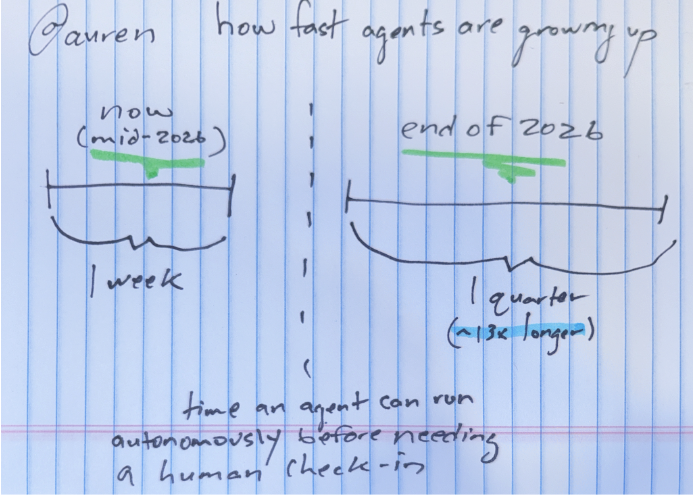 @auren how fast agents are growing up
now
(mid-2026)
end of 2026
1 week
1 quarter
(~13x longer)
time an agent can run
autonomously before needing
a human check-in